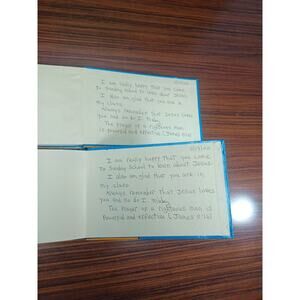 I am really happy that you come
to Sunday school to learn about Jesus.
I also am glad that you are in
my class.
Always remember that Jesus loves
you and so do I.
The prayer of a righteous man
is powerful and effective (James 5:16)
I am really happy that you come
to Sunday school to learn about Jesus.
I also am glad that you are in
my class.
Always remember that Jesus loves
you and so do I.
The prayer of a righteous man is
powerful and effective (James 5:16)